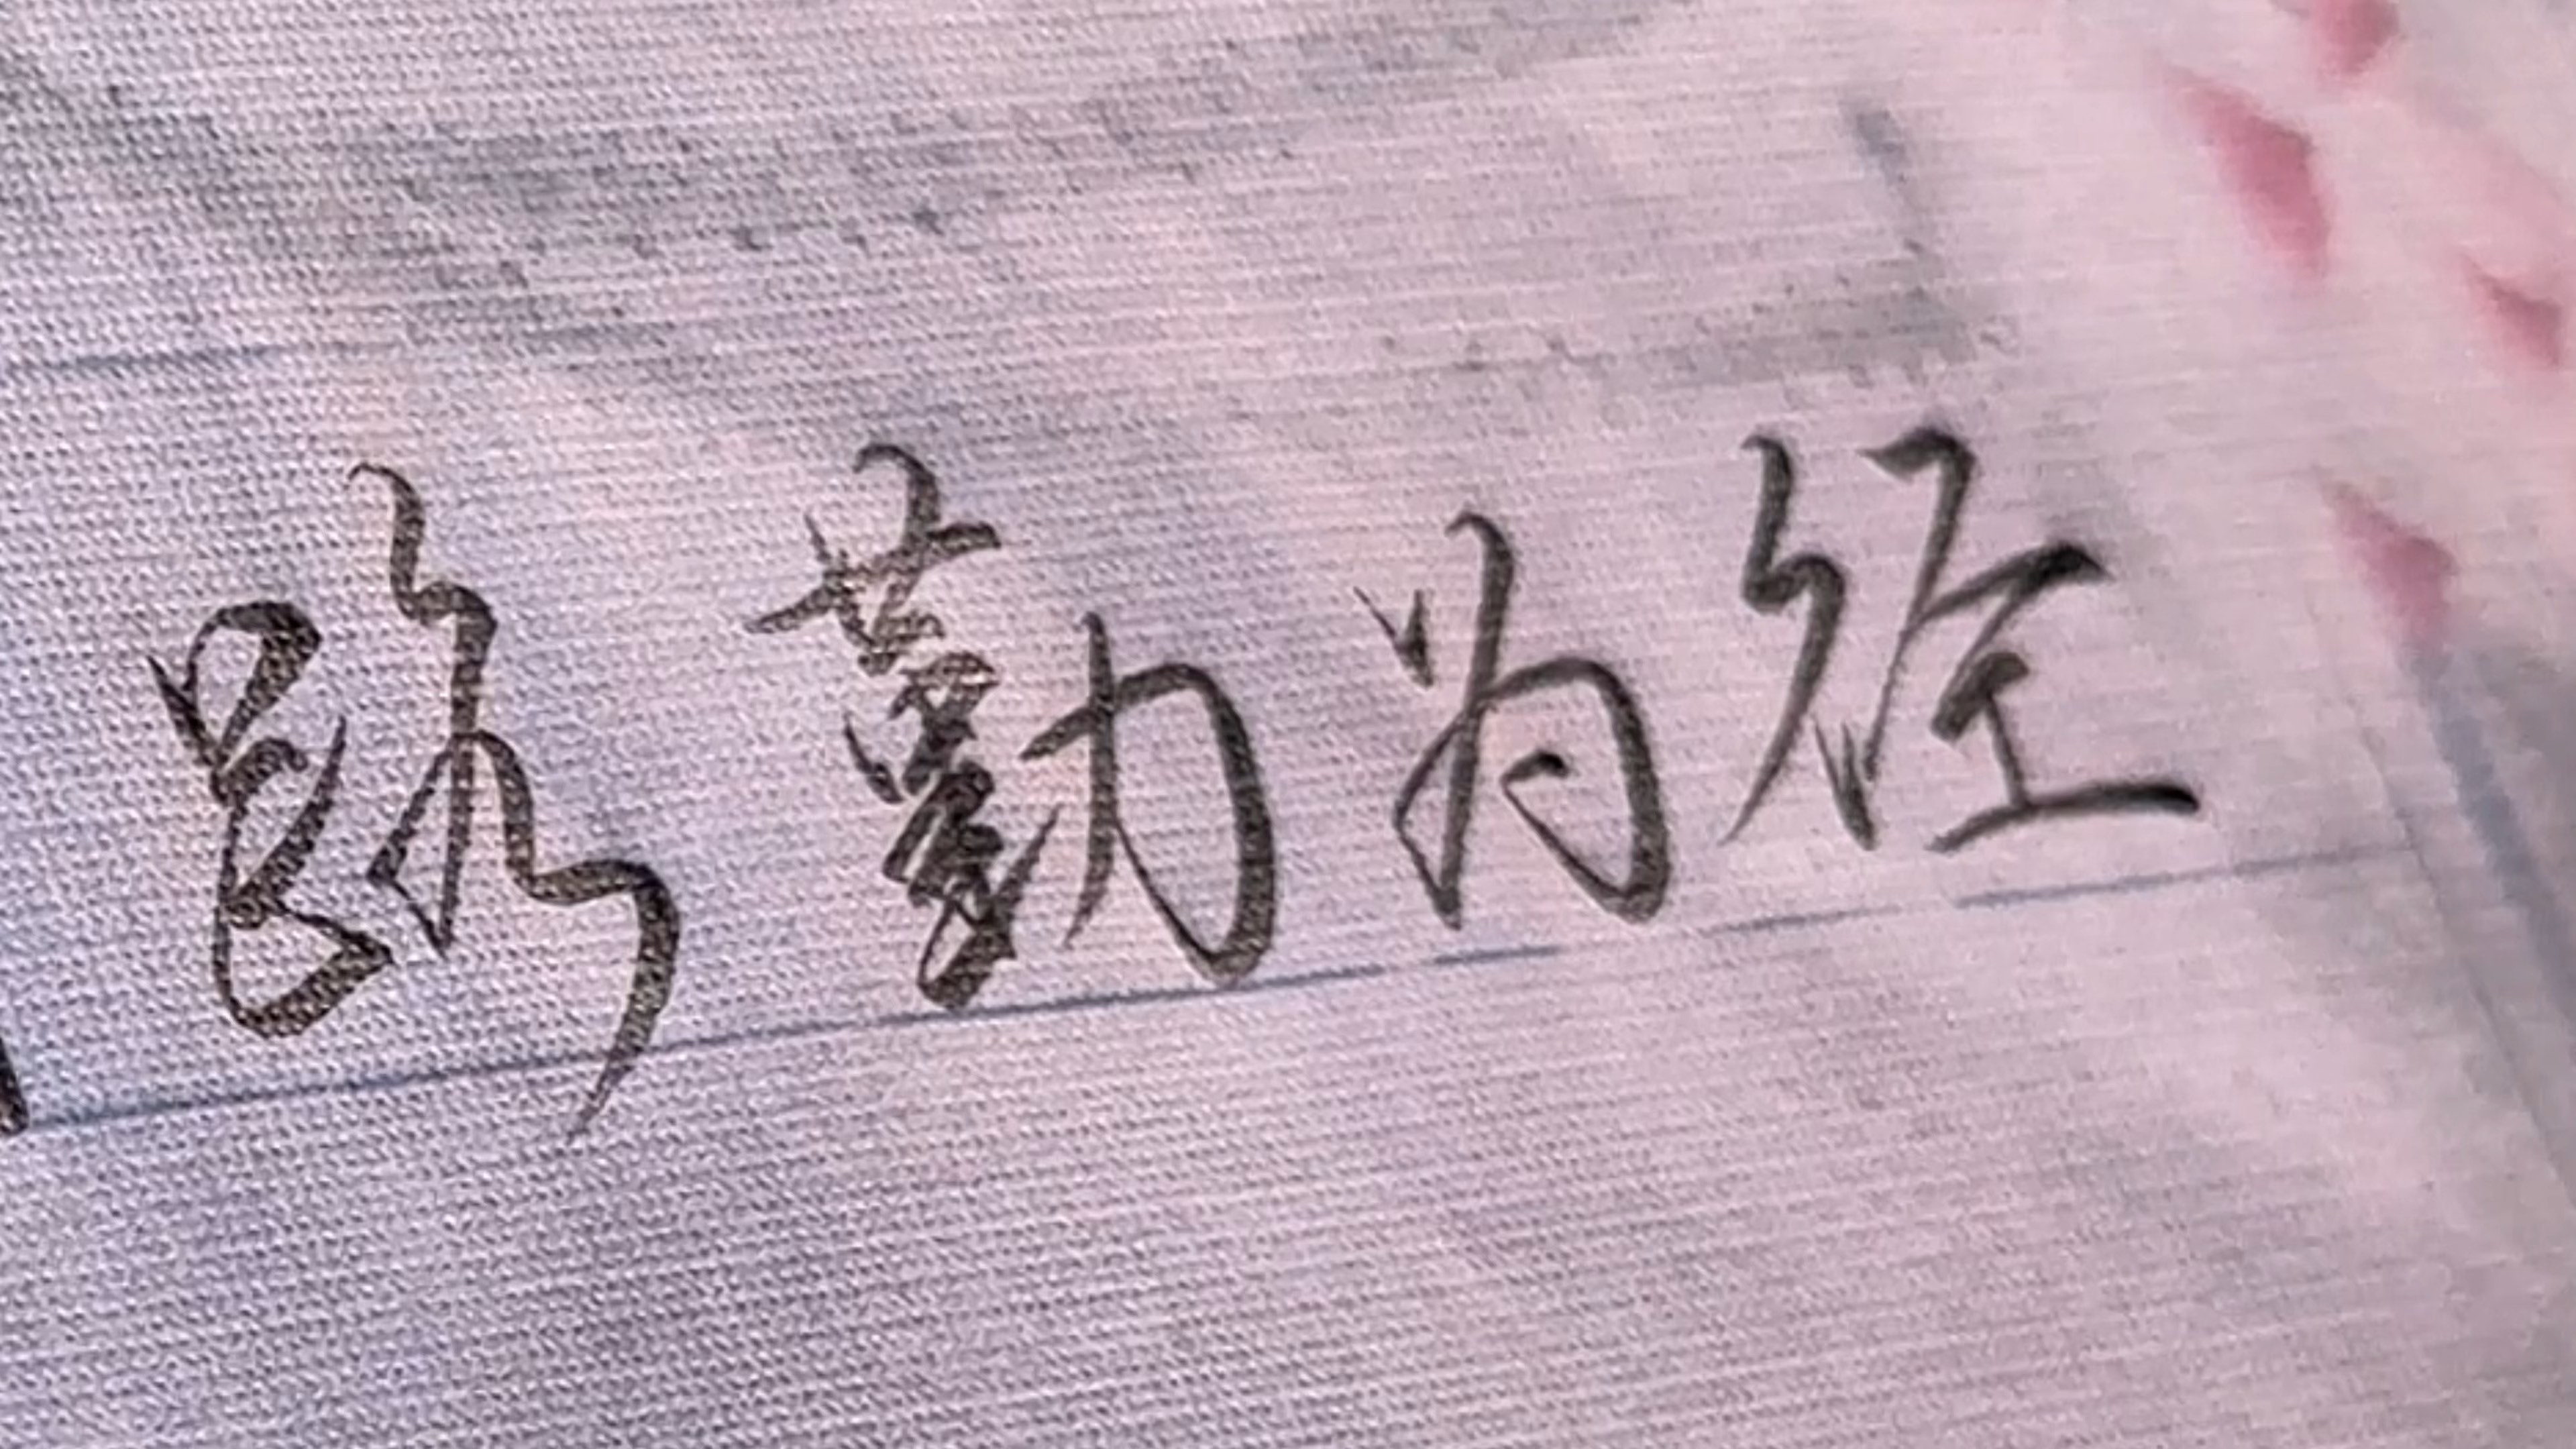 路勤为径